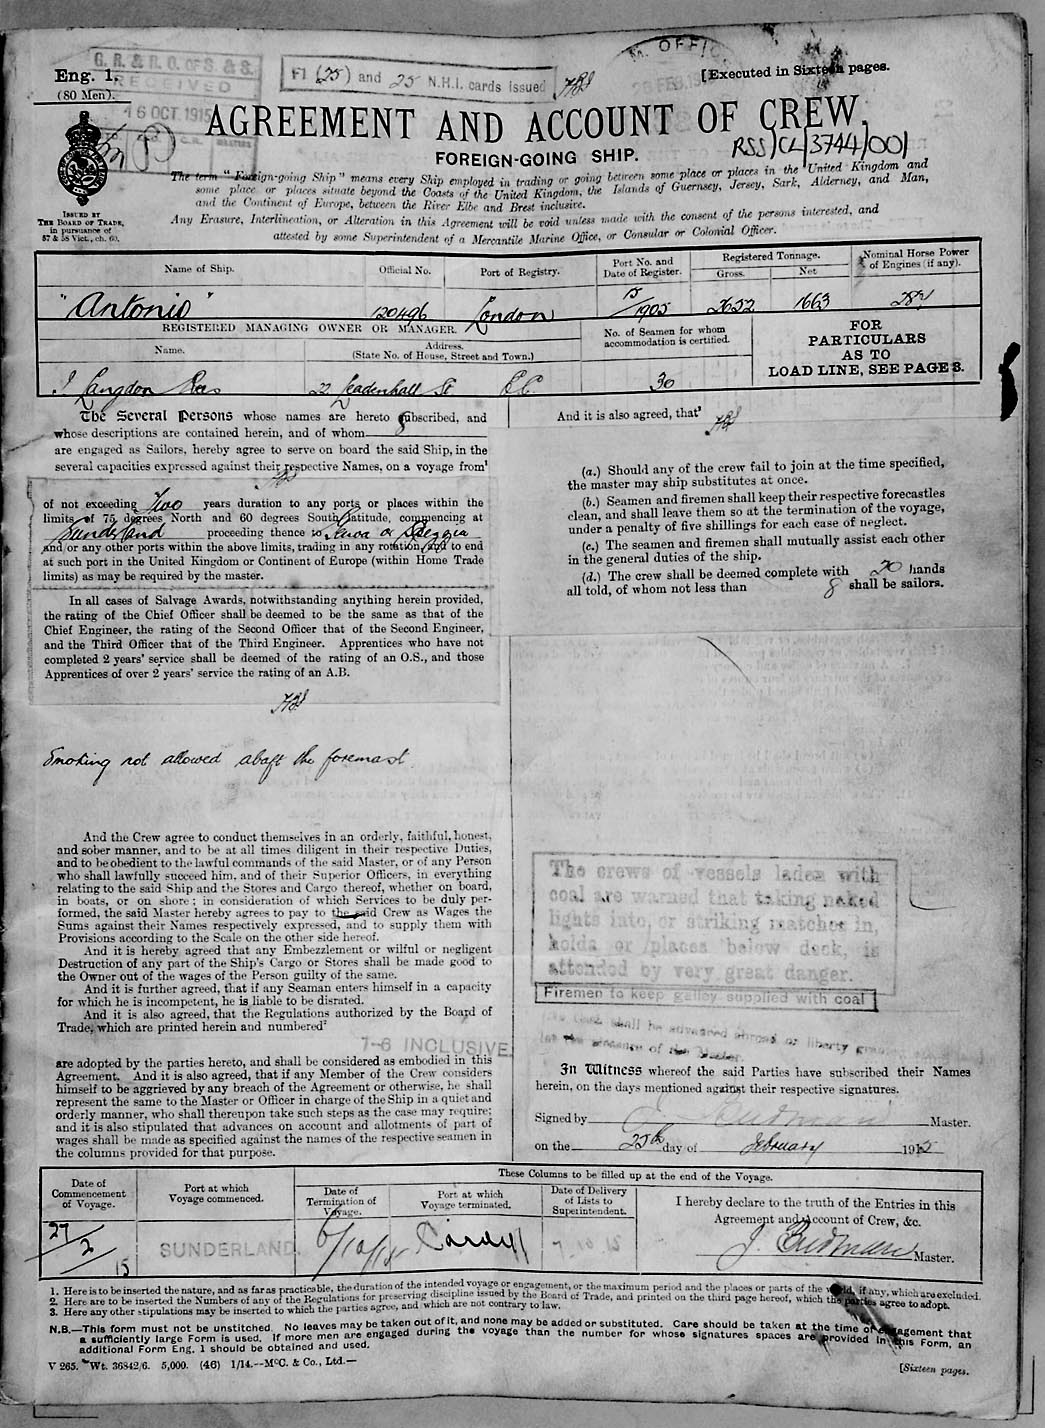 Eng. 1.
(80 Men).
G. R. & R. O. OF S. & S.
RECEIVED
16 OCT. 1915
F1 (25) and 25 N.H.I. cards issued
M. OFFIC
[Executed in Sixteen pages.
AGREEMENT AND ACCOUNT OF CREW.
FOREIGN-GOING SHIP.
RSS/CL/3744/001
The term "Foreign-going Ship" means every Ship employed in trading or going between some place or places in the United Kingdom and
some place or places situate beyond the Coasts of the United Kingdom, the Islands of Guernsey, Jersey, Sark, Alderney, and Man,
and the Continent of Europe, between the River Elbe and Brest inclusive.
Any Erasure, Interlineation, or Alteration in this Agreement will be void unless made with the consent of the persons interested, and
attested by some Superintendent of a Mercantile Marine Office, or Consular or Colonial Officer.
ISSUED BY
THE BOARD OF TRADE,
in pursuance of
57 & 58 Vict., ch. 60.
Name of Ship. Official No. Port of Registry. Port No. and Date of Register. Registered Tonnage. Gross. Net Nominal Horse Power of Engines (if any).
"Antonio" 120496 London 15/1905 2652 1663
REGISTERED MANAGING OWNER OR MANAGER.
Name. Address.
(State No. of House, Street and Town.)
No. of Seamen for whom
accommodation is certified.
FOR
PARTICULARS
AS TO
LOAD LINE, SEE PAGE 3.
J. Langdon Rees 22 Leadenhall St E.C. 30
The Several Persons whose names are hereto subscribed, and
whose descriptions are contained herein, and of whom 8
are engaged as Sailors, hereby agree to serve on board the said Ship, in the
several capacities expressed against their respective Names, on a voyage from¹
of not exceeding Two years duration to any ports or places within the
limits of 75 degrees North and 60 degrees South latitude, commencing at
Sunderland proceeding thence to Genoa or Speggia
and/or any other ports within the above limits, trading in any rotation, and to end
at such port in the United Kingdom or Continent of Europe (within Home Trade
limits) as may be required by the master.
In all cases of Salvage Awards, notwithstanding anything herein provided,
the rating of the Chief Officer shall be deemed to be the same as that of the
Chief Engineer, the rating of the Second Officer that of the Second Engineer,
and the Third Officer that of the Third Engineer. Apprentices who have not
completed 2 years' service shall be deemed of the rating of an O.S., and those
Apprentices of over 2 years' service the rating of an A.B.
Smoking not allowed abaft the foremast
And the Crew agree to conduct themselves in an orderly, faithful, honest,
and sober manner, and to be at all times diligent in their respective Duties,
and to be obedient to the lawful commands of the said Master, or of any Person
who shall lawfully succeed him, and of their Superior Officers, in everything
relating to the said Ship and the Stores and Cargo thereof, whether on board,
in boats, or on shore; in consideration of which Services to be duly per-
formed, the said Master hereby agrees to pay to the said Crew as Wages the
Sums against their Names respectively expressed, and to supply them with
Provisions according to the Scale on the other side hereof.
And it is hereby agreed that any Embezzlement or wilful or negligent
Destruction of any part of the Ship's Cargo or Stores shall be made good to
the Owner out of the wages of the Person guilty of the same.
And it is further agreed, that if any Seaman enters himself in a capacity
for which he is incompetent, he is liable to be disrated.
And it is also agreed, that the Regulations authorized by the Board of
Trade, which are printed herein and numbered²
1-6 INCLUSIVE
are adopted by the parties hereto, and shall be considered as embodied in this
Agreement. And it is also agreed, that if any Member of the Crew considers
himself to be aggrieved by any breach of the Agreement or otherwise, he shall
represent the same to the Master or Officer in charge of the Ship in a quiet and
orderly manner, who shall thereupon take such steps as the case may require;
and it is also stipulated that advances on account and allotments of part of
wages shall be made as specified against the names of the respective seamen in
the columns provided for that purpose.
And it is also agreed, that³
(a.) Should any of the crew fail to join at the time specified,
the master may ship substitutes at once.
(b.) Seamen and firemen shall keep their respective forecastles
clean, and shall leave them so at the termination of the voyage,
under a penalty of five shillings for each case of neglect.
(c.) The seamen and firemen shall mutually assist each other
in the general duties of the ship.
(d.) The crew shall be deemed complete with 20 hands
all told, of whom not less than 8 shall be sailors.
The crews of vessels laden with
coal are warned that taking naked
lights into, or striking matches in,
holds or places below deck, is
attended by very great danger.
Firemen to keep galley supplied with coal
No cash shall be advanced abroad or liberty
In Witness whereof the said Parties have subscribed their Names
herein, on the days mentioned against their respective signatures.
Signed by Master.
on the 25th day of February 1915
Date of
Commencement
of Voyage.
Port at which
Voyage commenced.
These Columns to be filled up at the end of the Voyage.
Date of
Termination of
Voyage.
Port at which
Voyage terminated.
Date of Delivery
of Lists to
Superintendent.
I hereby declare to the truth of the Entries in this
Agreement and Account of Crew, &c.
27/2/15 SUNDERLAND. 6/10/15 Cardiff 7 10 15
Master.
1. Here is to be inserted the nature, and as far as practicable, the duration of the intended voyage or engagement, or the maximum period and the places or parts of the world, if any, which are excluded.
2. Here are to be inserted the Numbers of any of the Regulations for preserving discipline issued by the Board of Trade, and printed on the third page hereof, which the parties agree to adopt.
3. Here any other stipulations may be inserted to which the parties agree, and which are not contrary to law.
N.B.—This form must not be unstitched. No leaves may be taken out of it, and none may be added or substituted. Care should be taken at the time of engagement that
a sufficiently large Form is used. If more men are engaged during the voyage than the number for whose signatures spaces are provided in this Form, an
additional Form Eng. 1 should be obtained and used.
V 265. Wt. 36842/6. 5,000. (46) 1/14.--McC. & Co., Ltd.—
[Sixteen pages.